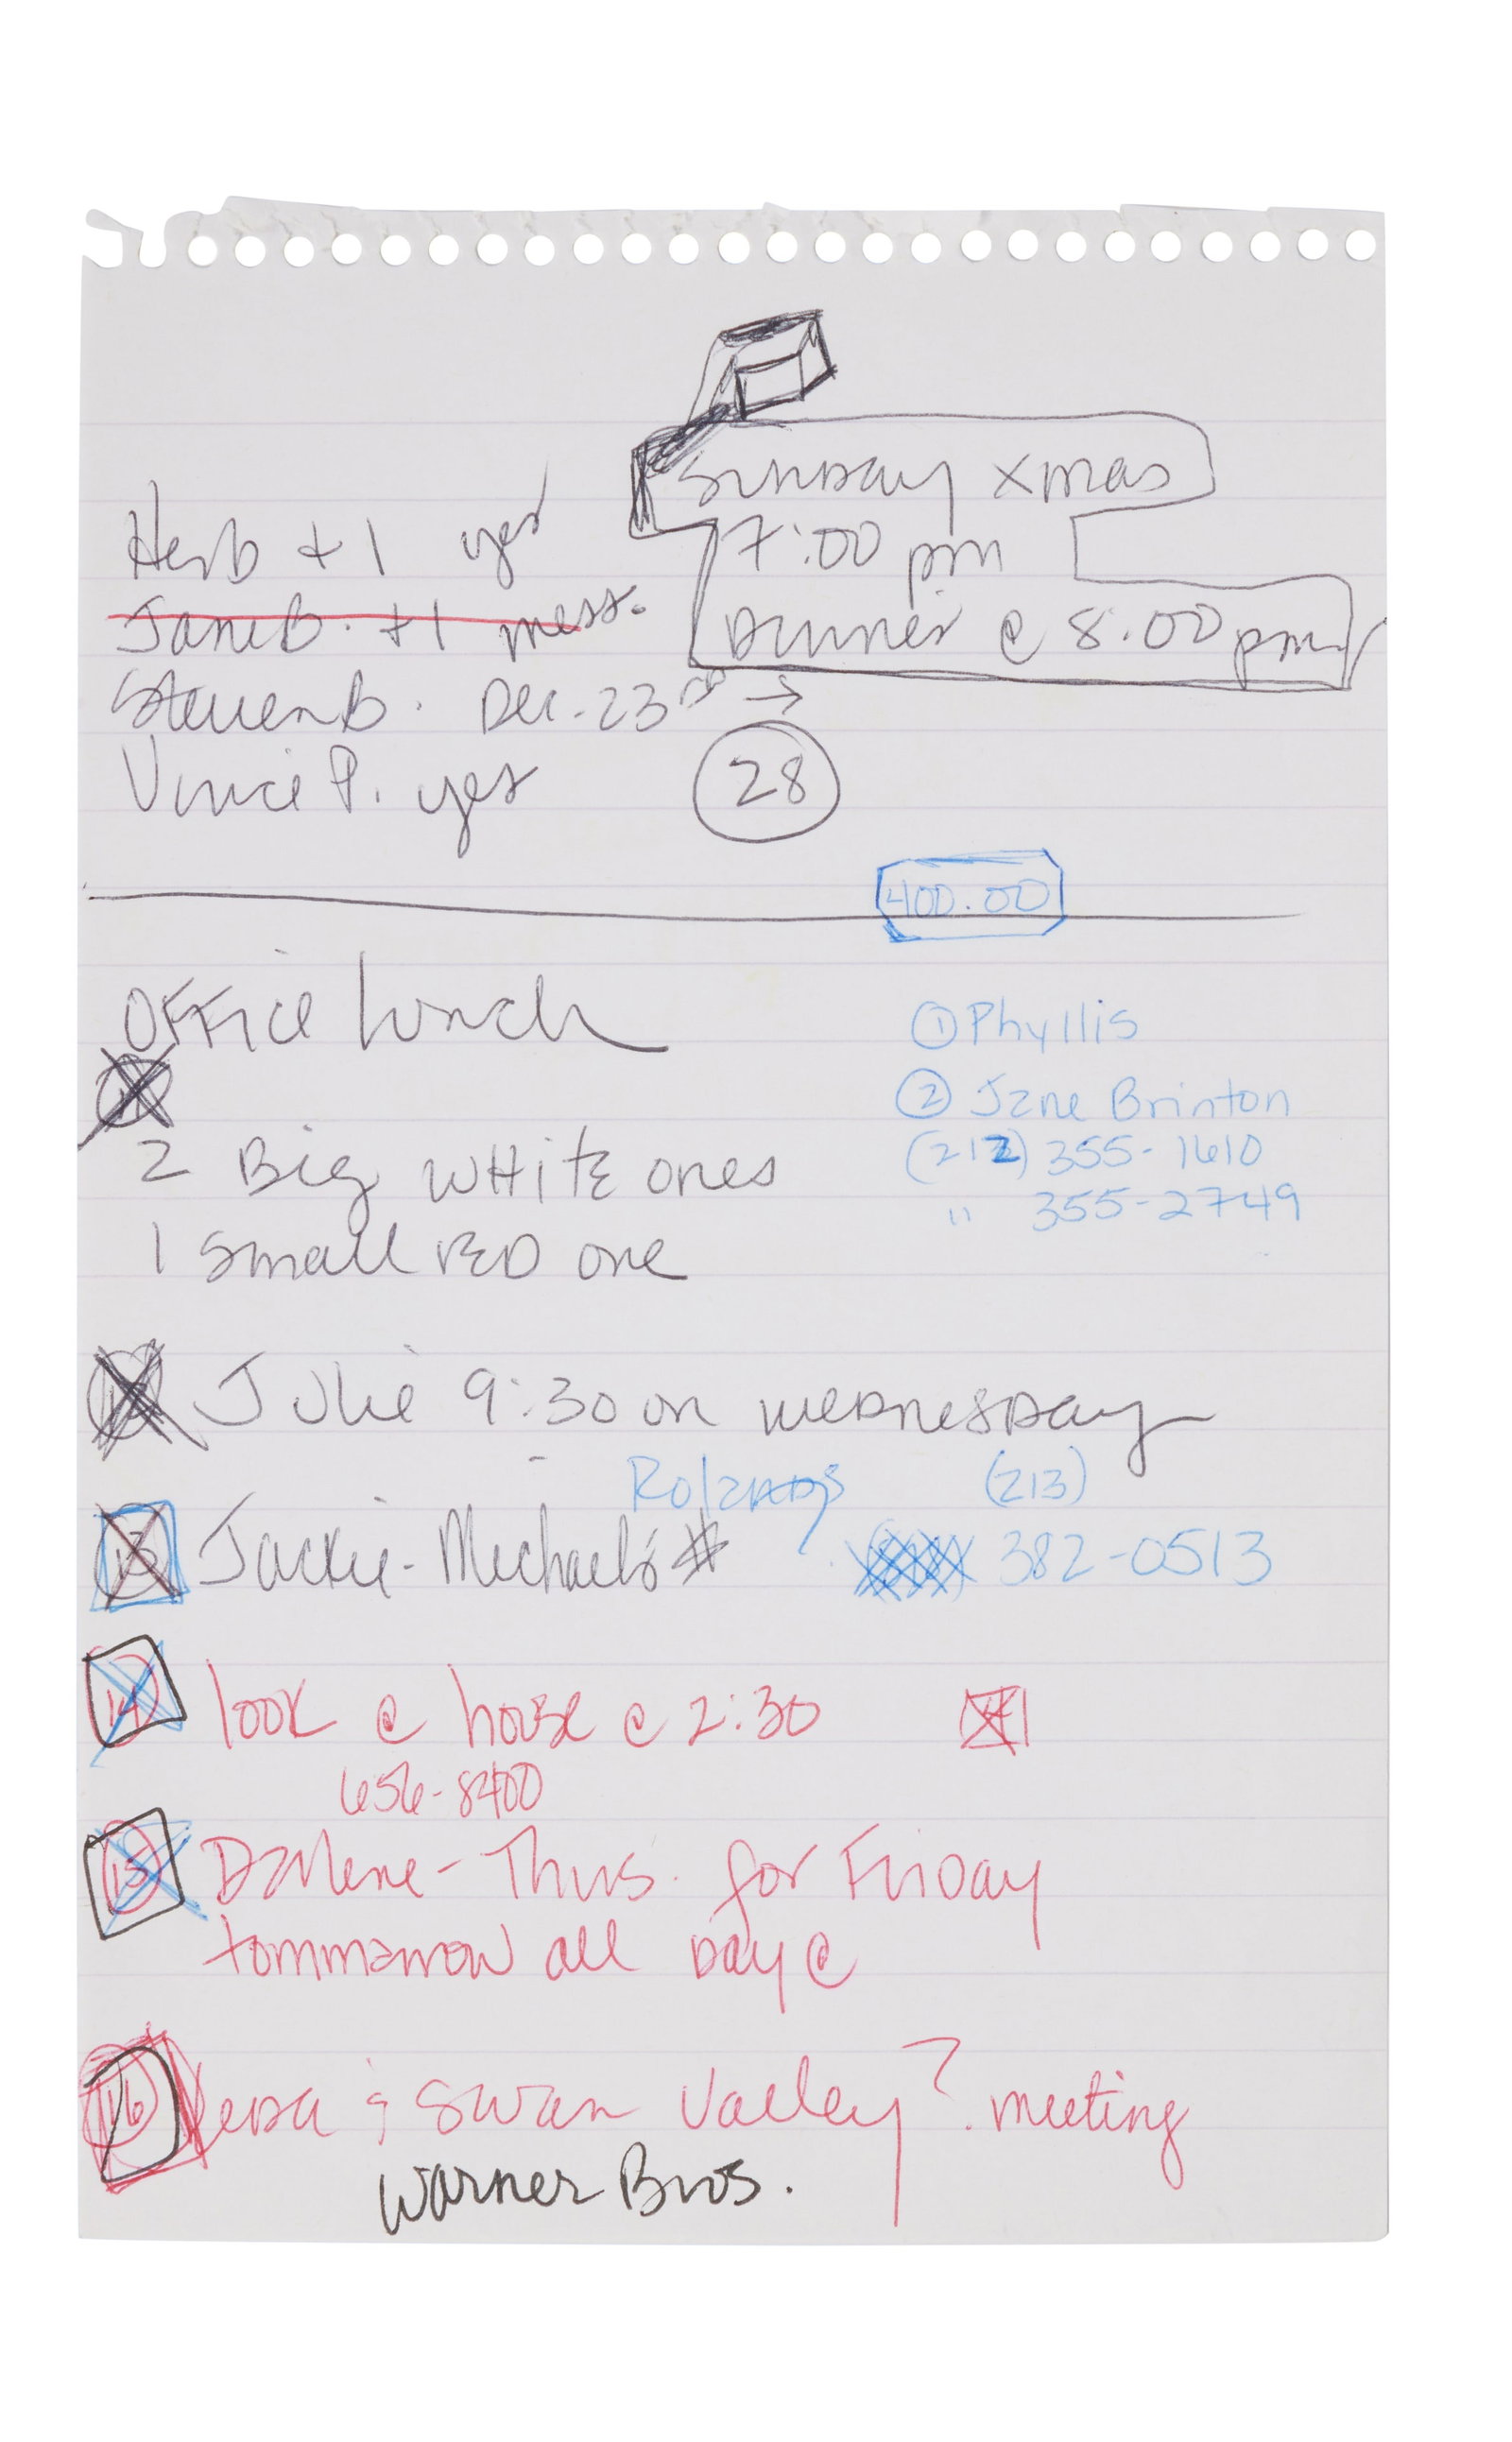 Sunday xmas
7:00 pm
Dinner @ 8:00 pm
Herb +1 yes
Jane B. +1 mess.
Steven B. Dec. 23rd →
Vince P. yes
28
400.00
OFFice lunch
11
2 Big WHITE ones
1 small RED one
① Phyllis
② Jane Brinton
(212) 355-1610
" 355-2749
12 Julie 9:30 on wednesday
13 Jackie - Michael's #
Rolands (213)
382-0513
14 look @ house @ 2:30
656-8400
15 Darlene - Thurs. for Friday
tommarrow all Day @
16 & Swan Valley? meeting
Warner Bros.